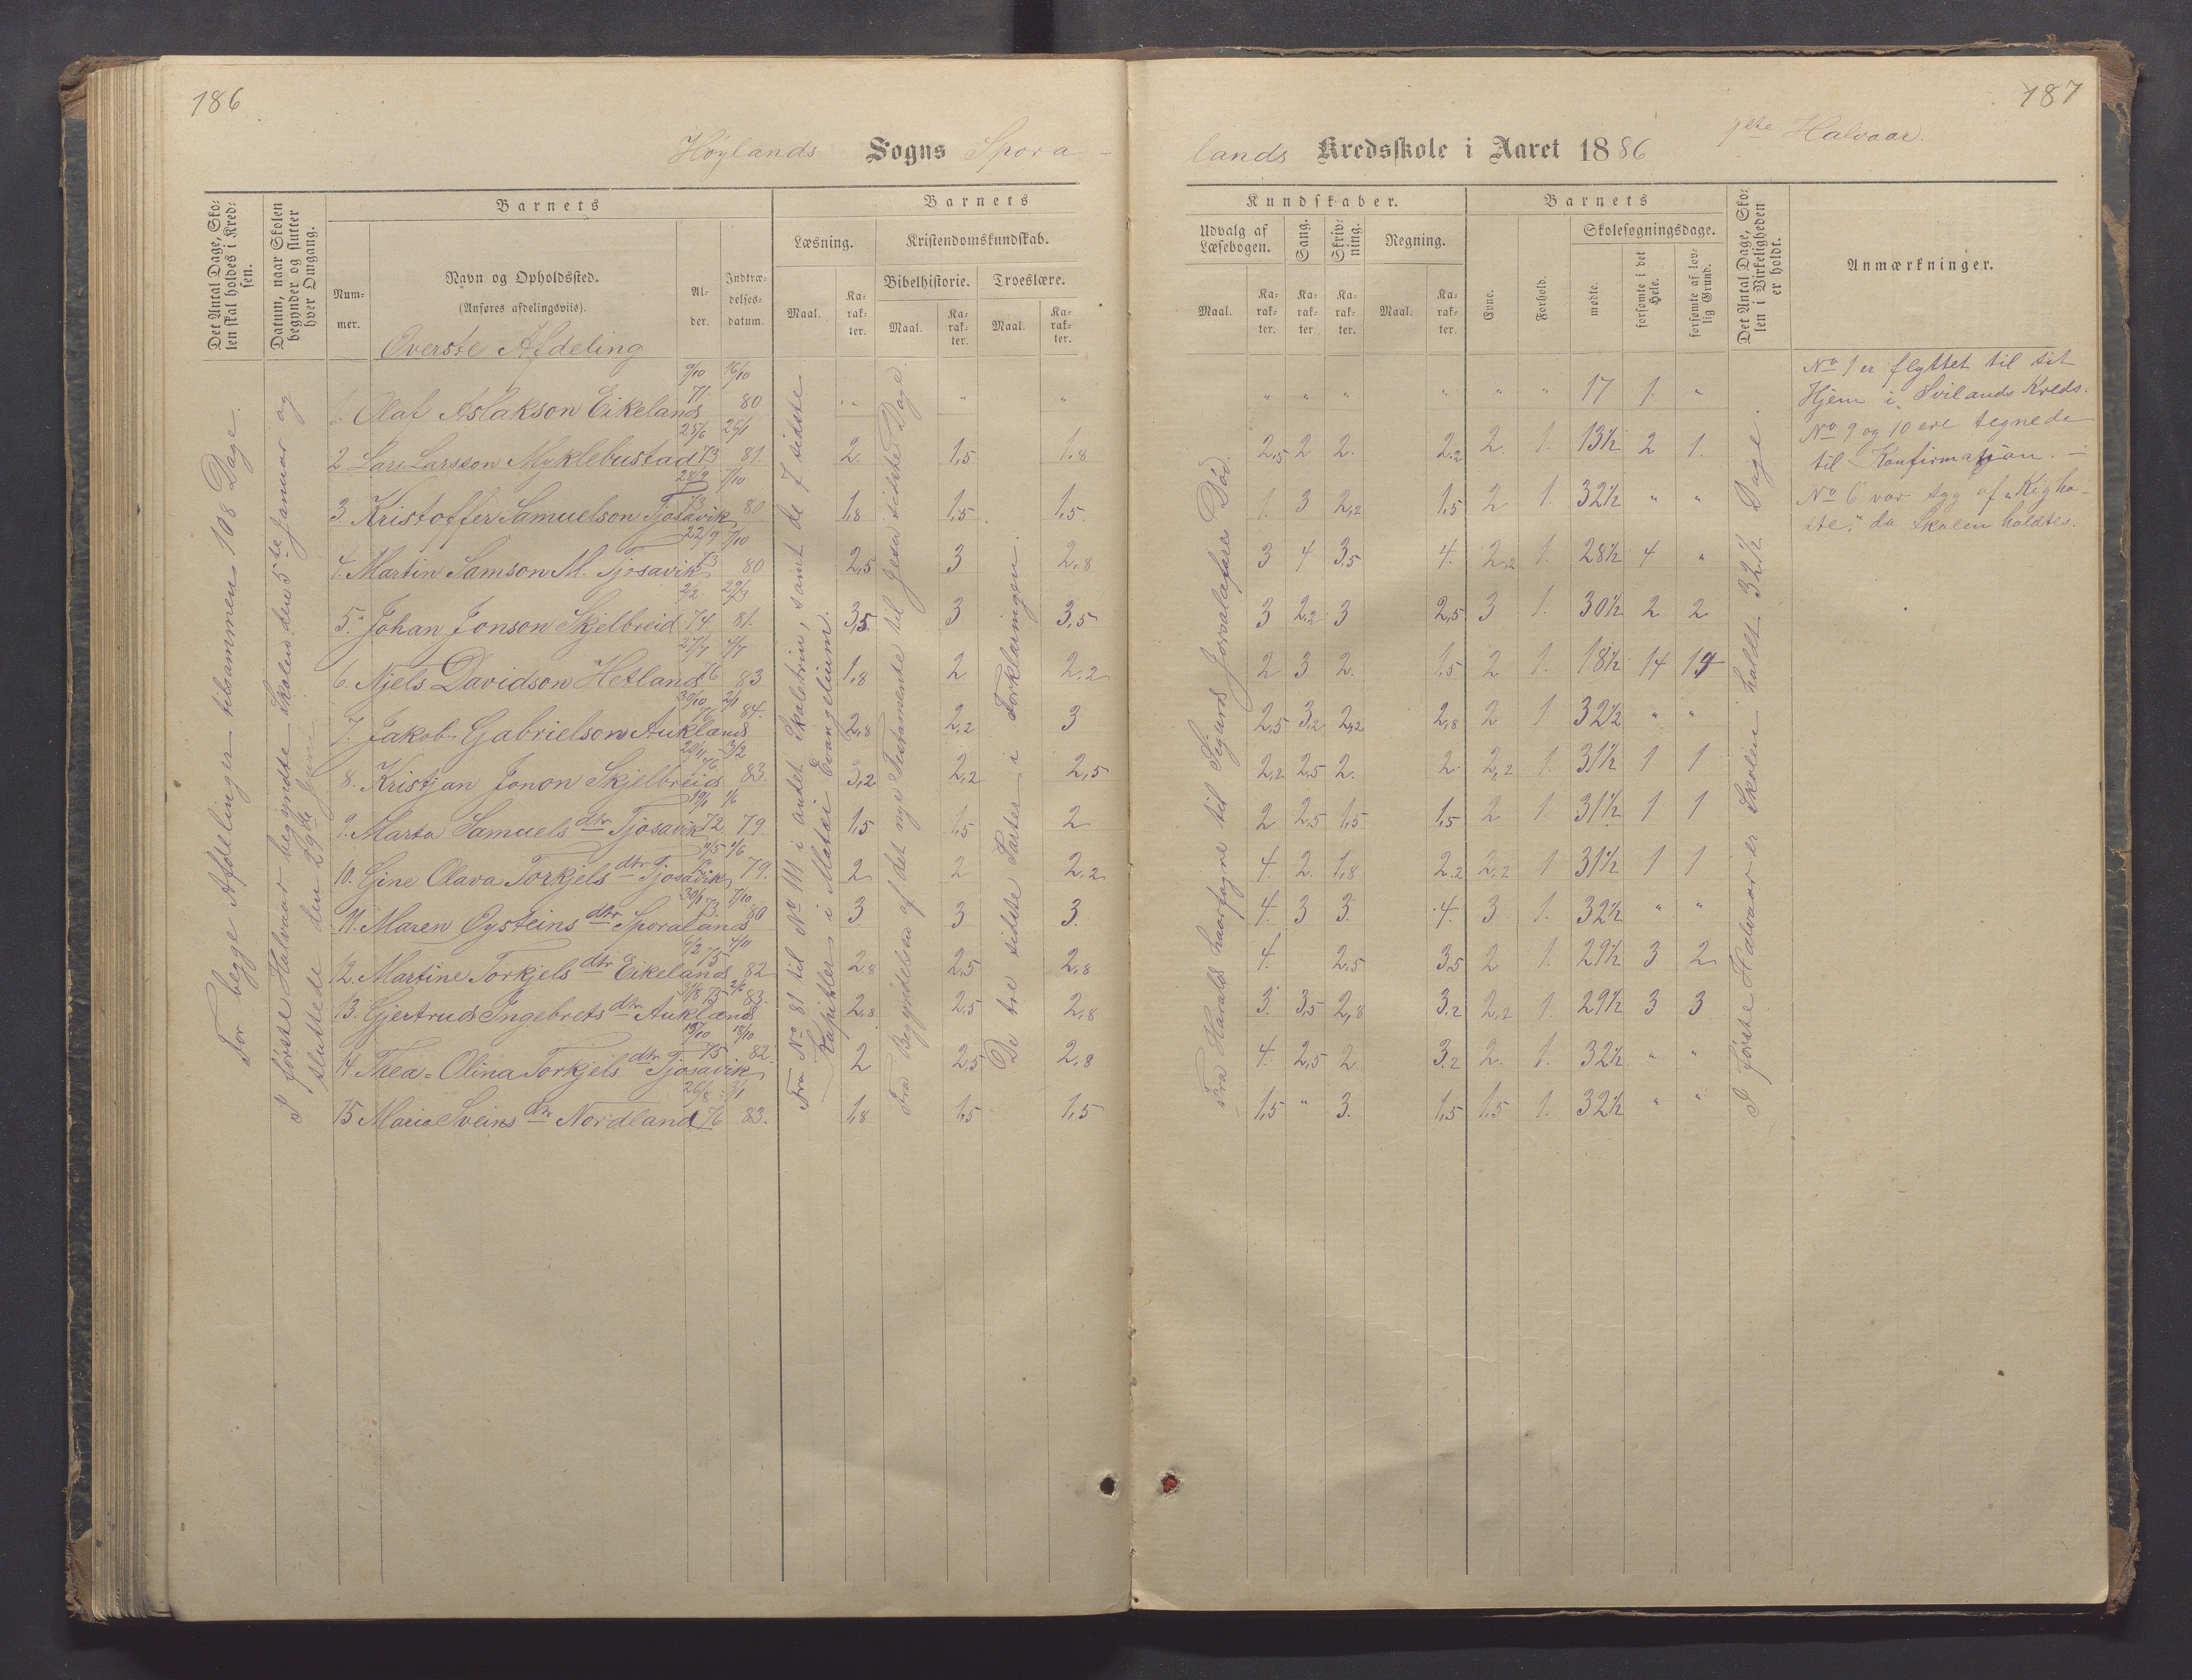 186
187
Höylands Sogns Spora-
lands Kredsskole i Aaret 1886 1ste Halvaar.
Det Antal Dage, Sko-
len skal holdes i Kred-
sen.
Datum, naar Skolen
begynder og slutter
hver Omgang.
Barnets
Num-
mer.
Navn og Opholdssted.
(Anføres afdelingsviis).
Al-
der.
Indtræ-
delses-
datum.
Barnets
Læsning.
Maal.
Ka-
rak-
ter.
Kristendomskundskab.
Bibelhistorie.
Maal.
Ka-
rak-
ter.
Troeslære.
Maal.
Ka-
rak-
ter.
Kundskaber.
Udvalg af
Læsebogen.
Maal.
Ka-
rak-
ter.
Sang.
Ka-
rak-
ter.
Skriv-
ning.
Ka-
rak-
ter.
Regning.
Maal.
Ka-
rak-
ter.
Barnets
Evne.
Forhold.
Skolesøgningsdage.
mødte.
forsømte i det
Hele.
forsømte af lov-
lig Grund.
Det Antal Dage, Sko-
len i Virkeligheden
er holdt.
Anmærkninger.
Överste Afdeling
For begge Afdelinger tilsammen 108 Dage.
I første Halvaar begyndte Skolen den 5te Januar og
sluttede den 29de
Fra No 81 til No 111 i andet Skoletrin, samt de 7 sidste
Kapitler i Matæi Evangelium.
Fra Begyndelsen af det nye Testamente til Jesu sidste Dage.
De tre sidste Parter i Forklaringen.
Fra Harald Haarfagre til Sigurd Jorsalafares Död.
I første Halvaar er Skolen holdt 32½ Dage.
1. Olaf Aslakson Eikeland 9/10 71 16/10 80 " " " " " " " " " 17 1 "
2. Lars Larsson Myklebustad 25/6 73 26/1 81. 2. 1,5 1,8 2,5 2 2. 2,2 2. 1. 13½ 2 1.
3. Kristoffer Samuelson Tjosavik 28/9 73 7/10 80 1,8 1,5 1,5 1. 3 2,2 1,5 2 1. 32½ " "
4. Martin Samson M. Tjosavik 22/9 73 7/10 80 2,5 3 2,8 3 4 3,5 4. 2,2 1. 28½ 4 "
5. Johan Jonson Skjelbreid 2/2 74. 81. 3,5 3 3,5 3 2,2 3 2,5 3 1. 30½ 2 2
6. Njels Davidson Hetland 27/7 76 4/7 83 1,8 2 2,2 2 3 2. 1,5 2 1. 18½ 14 14
7. Jakob Gabrielson Aukland 30/10 76 2/1 84. 2,8 2,2 3 2,5 3,2 2,2 2,8 2 1 32½ " "
8. Kristjan Jonon Skjelbreid 20/11 76 3/2 83. 3,2 2,2 2,5 2,2 2,5 2. 2. 2,2 1. 31½ 1 1
9. Marta Samuels dtr Tjosavik 19/1 72 1/6 79. 1,5 1,5 2 2 2,5 1,5 1,5 2 1. 31½ 1 1
10. Gine Olava Torkjels dtr Tjosavik 11/5 72 1/6 79. 2 2 2,2 4. 2. 1,8 2,2 2,2 1 31½ 1 1
11. Maren Øysteins dtr Sporaland 30/1 73. 7/10 80 3. 3 3. 4. 3 3. 4. 3 1. 32½ " "
12. Martine Torkjels dtr Eikeland 6/2 75 4/11 82 2,8 2,5 2,8 4. 2,5 3,5 2 1. 29½ 3 2
13. Gjertrud Ingebrets dtr Aukland 31/8 75 2/6 83. 2,8 2,5 2,8 3. 3,5 2,8 3,2 2,2 1. 29½ 3 3
14. Thea-Olina Torkjels dtr Tjosavik 13/10 75 18/10 82. 2 2,5 2,8 4. 2,5 2. 3,2 2. 1. 32½ " "
15 Maria Sveins dtr Nordland 26/8 76 3/1 83. 1,8 1,5 1,5 1,5 " 3. 1,5 1,5 1. 32½ " "
No 1 er flyttet til sit
Hjem i Svilands Kreds.
No 9 og 10 ere tegnede
til Konfirmasjon. —
No 6 var syg af "Kigho-
ste," da Skolen holdtes.